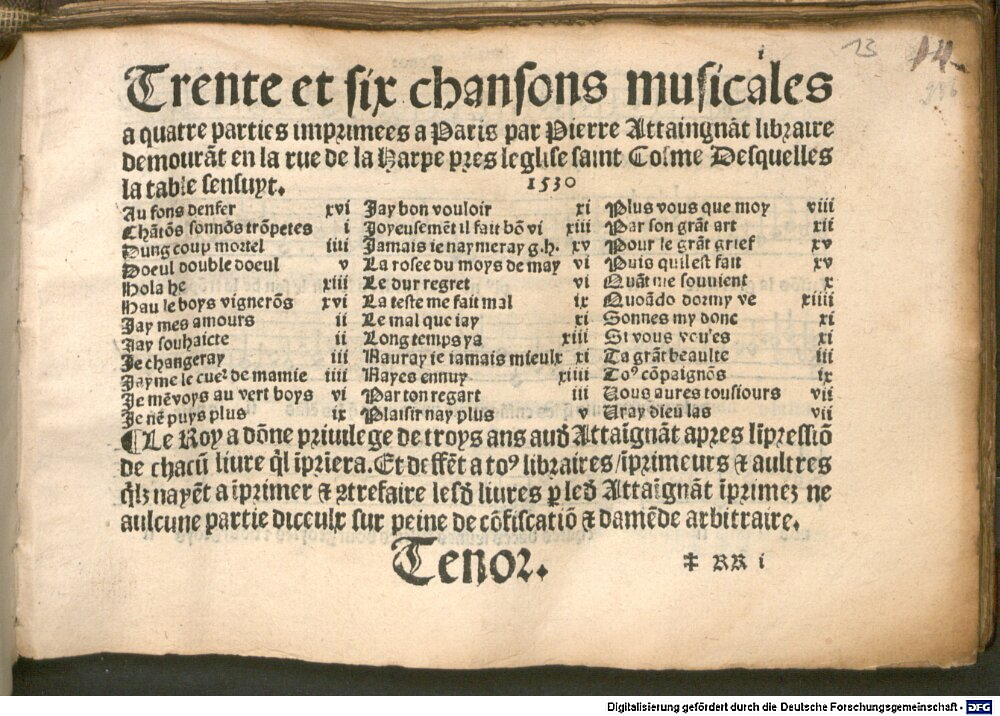 i
13 14
Trente et six chansons musicales
a quatre parties imprimees a Paris par Pierre Attaingnãt libraire
demourãt en la rue de la Harpe pres leglise saint Cosme Desquelles
la table sensuyt. 1530
Au fons denfer xvi
Chãtõs sonnõs trõpetes i
Dung coup mortel iiii
Doeul double doeul v
Hola he xiii
Hau le boys vignerõs xvi
Jay mes amours ii
Jay souhaicte ii
Je changeray iii
Jayme le cueᷣ de mamie iiii
Je mẽvoys au vert boys vi
Je nẽ puys plus ix
Jay bon vouloir xi
Joyeusemẽt il fait bõ vi xiii
Jamais ie naymeray g.h. xv
La rosee du moys de may vi
Le dur regret vi
La teste me fait mal ix
Le mal que iay xi
Long temps ya xiii
Nauray ie iamais mieulx xi
Nayes ennuy xiiii
Par ton regart iii
Plaisir nay plus v
Plus vous que moy viii
Par son grãt art xii
Pour le grãt grief xv
Puis quil est fait xv
Quãt me souuient x
Quoãdo dormy ve xiiii
Sonnes my donc xi
Si vous voules xi
Ta grãt beaulte iii
Toꝰ cõpaignõs ix
Vous aures tousiours vii
Vray dieu las vii
¶Le Roy a dõne priuilege de troys ans aud̃ Attaĩgnãt apres lĩpressiõ
de chacũ liure q̃l ĩprĩera. Et deffẽt a toꝰ libraires/ĩprimeurs & aultres
q̃lz nayẽt a ĩprimer & ꝯtrefaire lesd̃ liures ꝑ led̃ Attaĩgnãt ĩprimez ne
aulcune partie diceulx sur peine de cõfiscatiõ & damẽde arbitraire.
Tenor. ‡ RR i
Digitalisierung gefördert durch die Deutsche Forschungsgemeinschaft - DFG